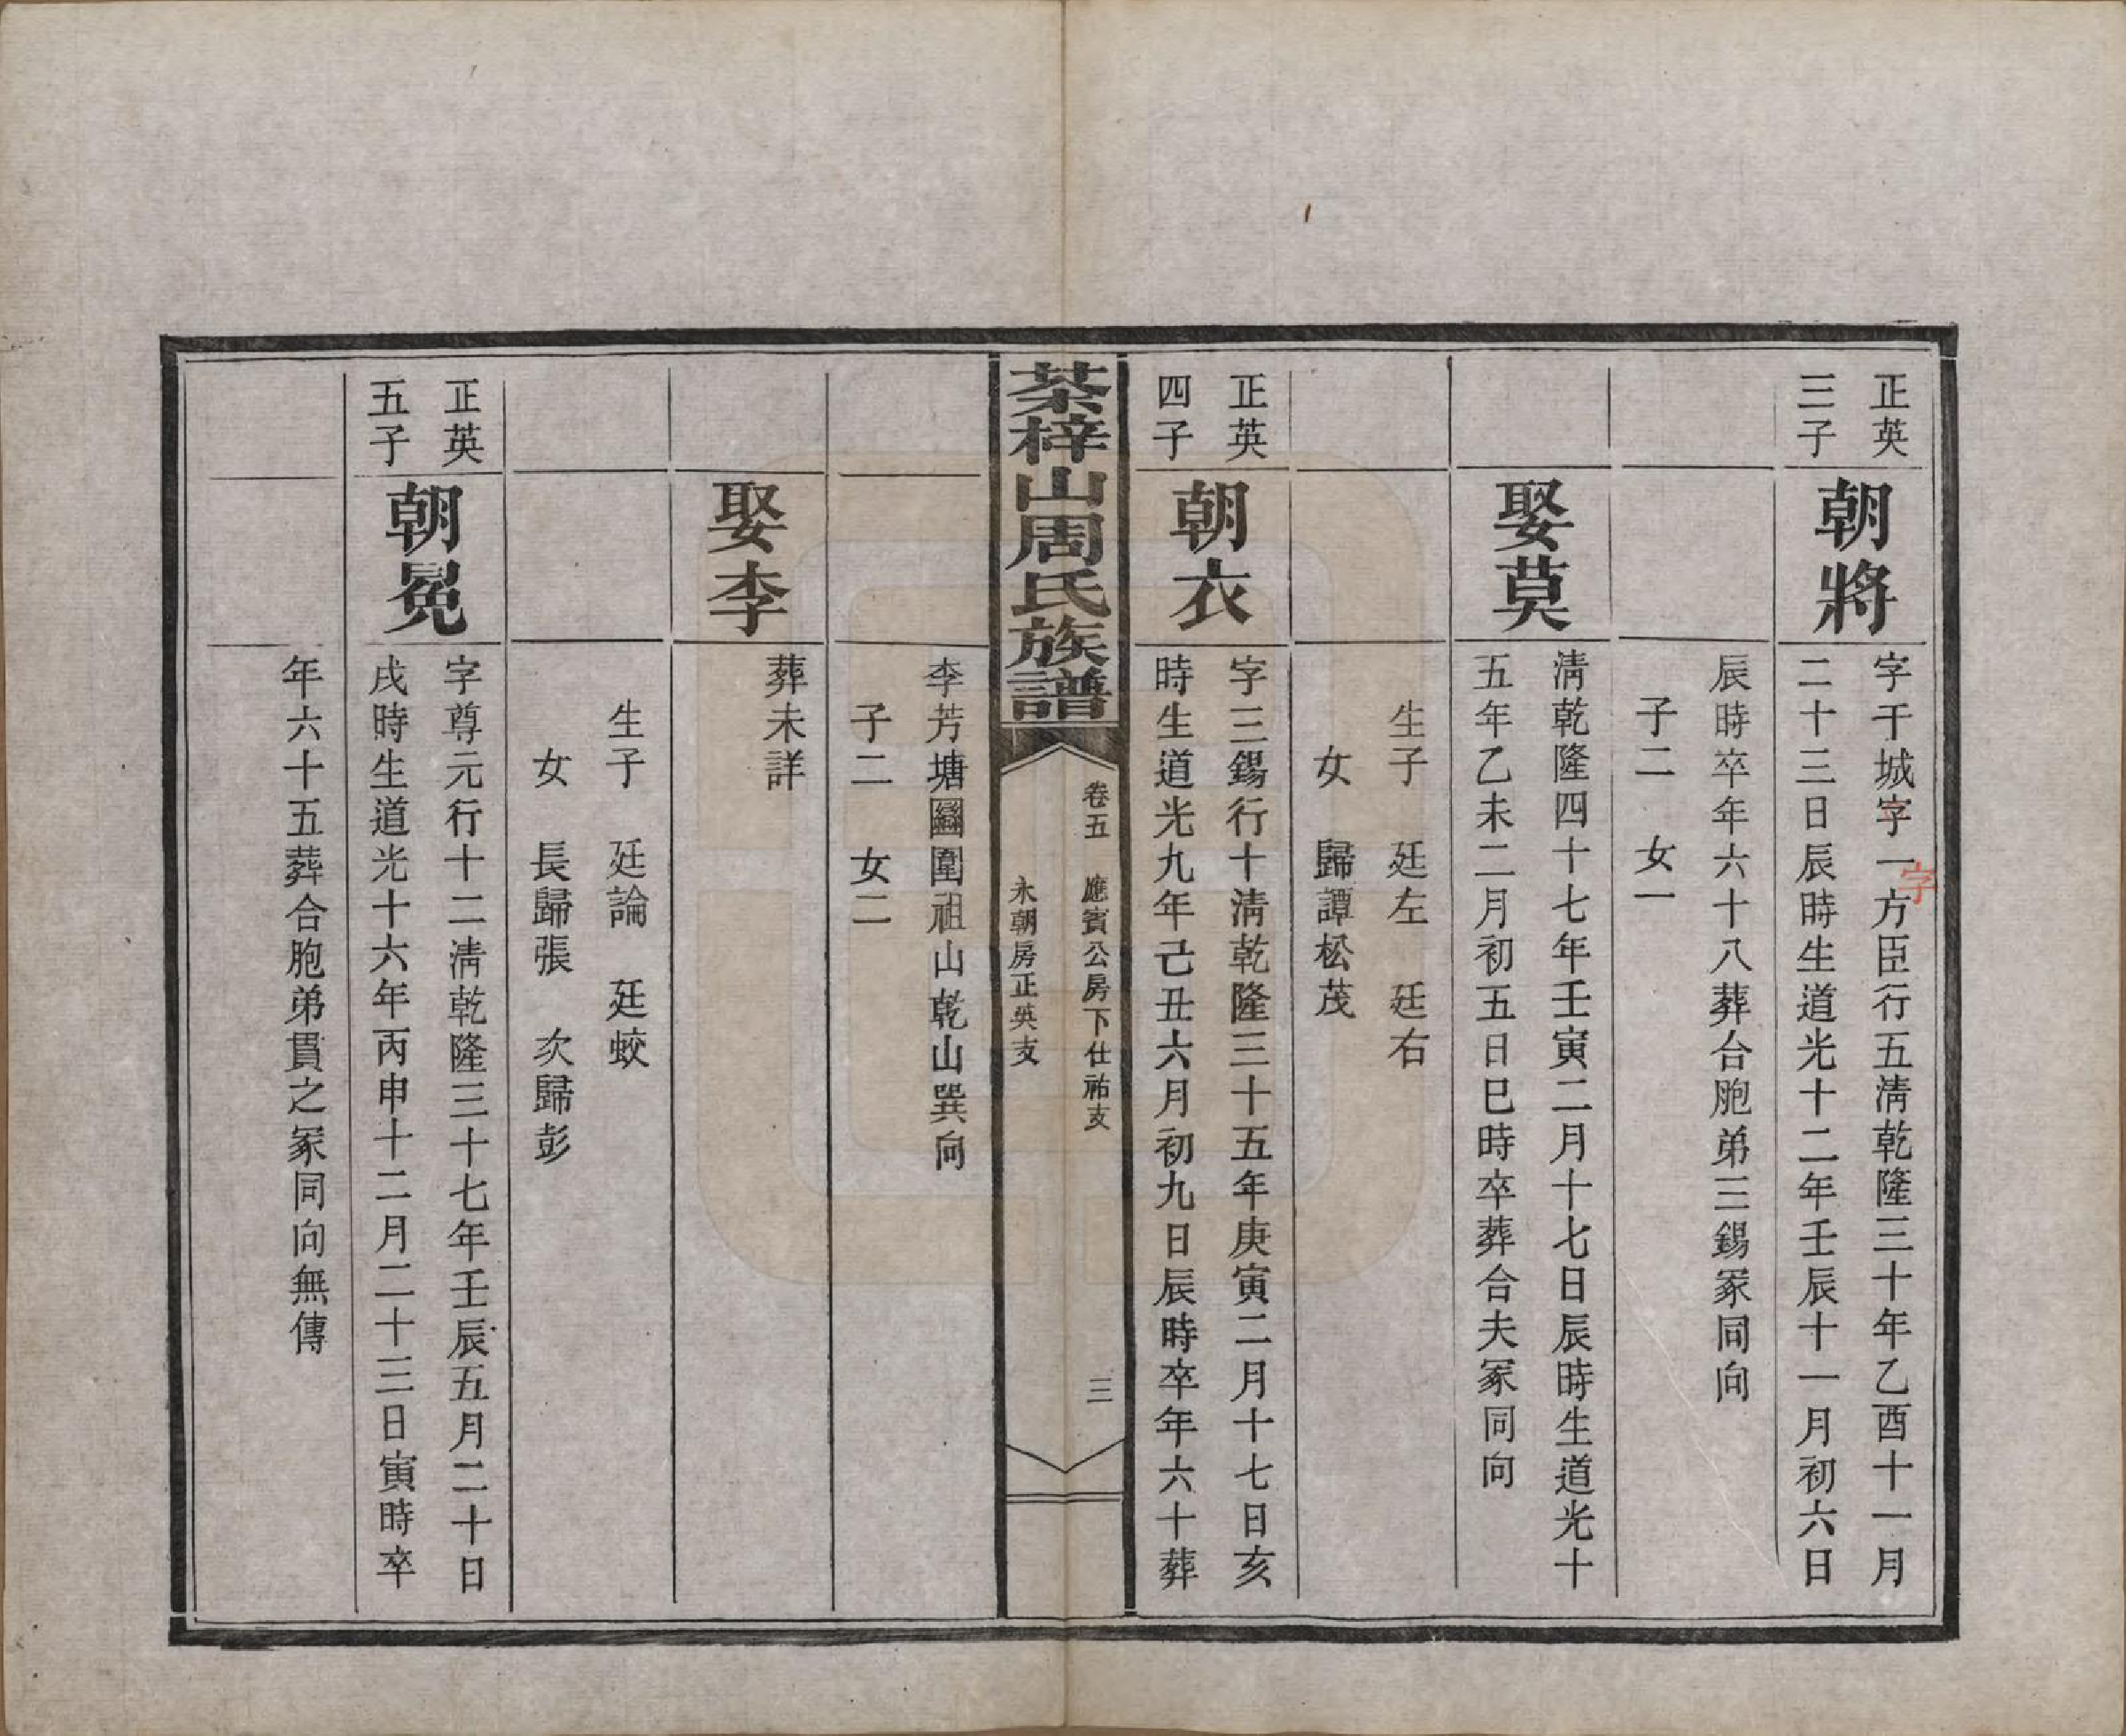 正英
三子
朝將
字干城字一方臣行五清乾隆三十年乙酉十一月
字
二十三日辰時生道光十二年壬辰十一月初六日
辰時卒年六十八葬合胞弟三錫冢同向
子二 女一
娶莫
清乾隆四十七年壬寅二月十七日辰時生道光十
五年乙未二月初五日巳時卒葬合夫冢同向
生子 廷左 廷右
女 歸譚松茂
正英
四子
朝衣
字三錫行十清乾隆三十五年庚寅二月十七日亥
時生道光九年己丑六月初九日辰時卒年六十葬
茶梓山周氏族譜
卷五 應賓公房下仕祐支
永朝房正英支
三
李芳塘圍祖山乾山巽向
子二 女二
娶李
葬未詳
生子 廷論 廷蛟
女 長歸張 次歸彭
正英
五子
朝冕
字尊元行十二清乾隆三十七年壬辰五月二十日
戌時生道光十六年丙申十二月二十三日寅時卒
年六十五葬合胞弟貫之冢同向無傳